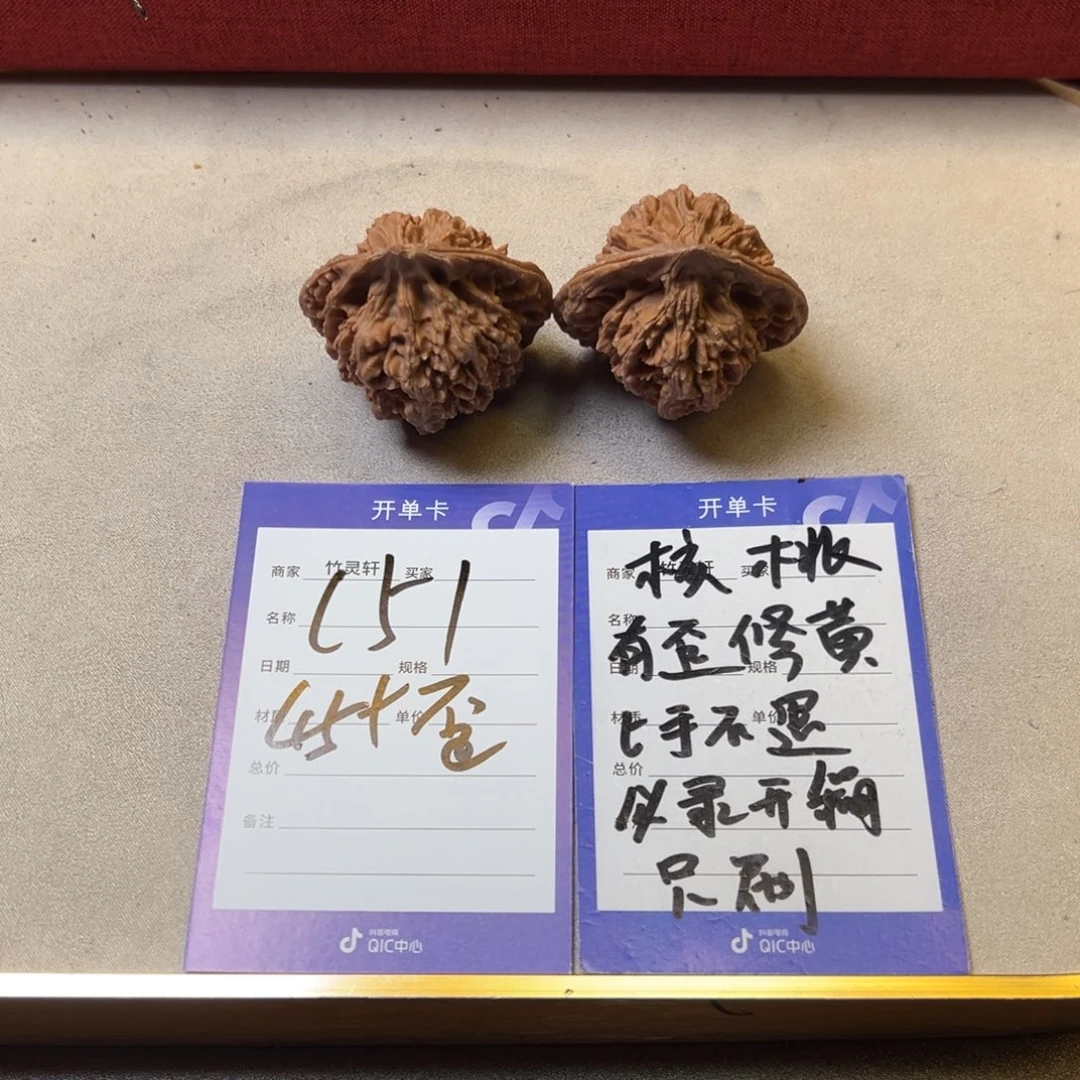 开单卡
商家 竹灵轩 买家
151
名称
日期 规格
45+歪
材质 单价
总价
备注
抖音电商
QIC中心
开单卡
商家 竹灵轩 买家
核桃
名称
有歪修黄
日期 规格
上手不退
材质 单价
必录开箱
总价
只刷
抖音电商
QIC中心